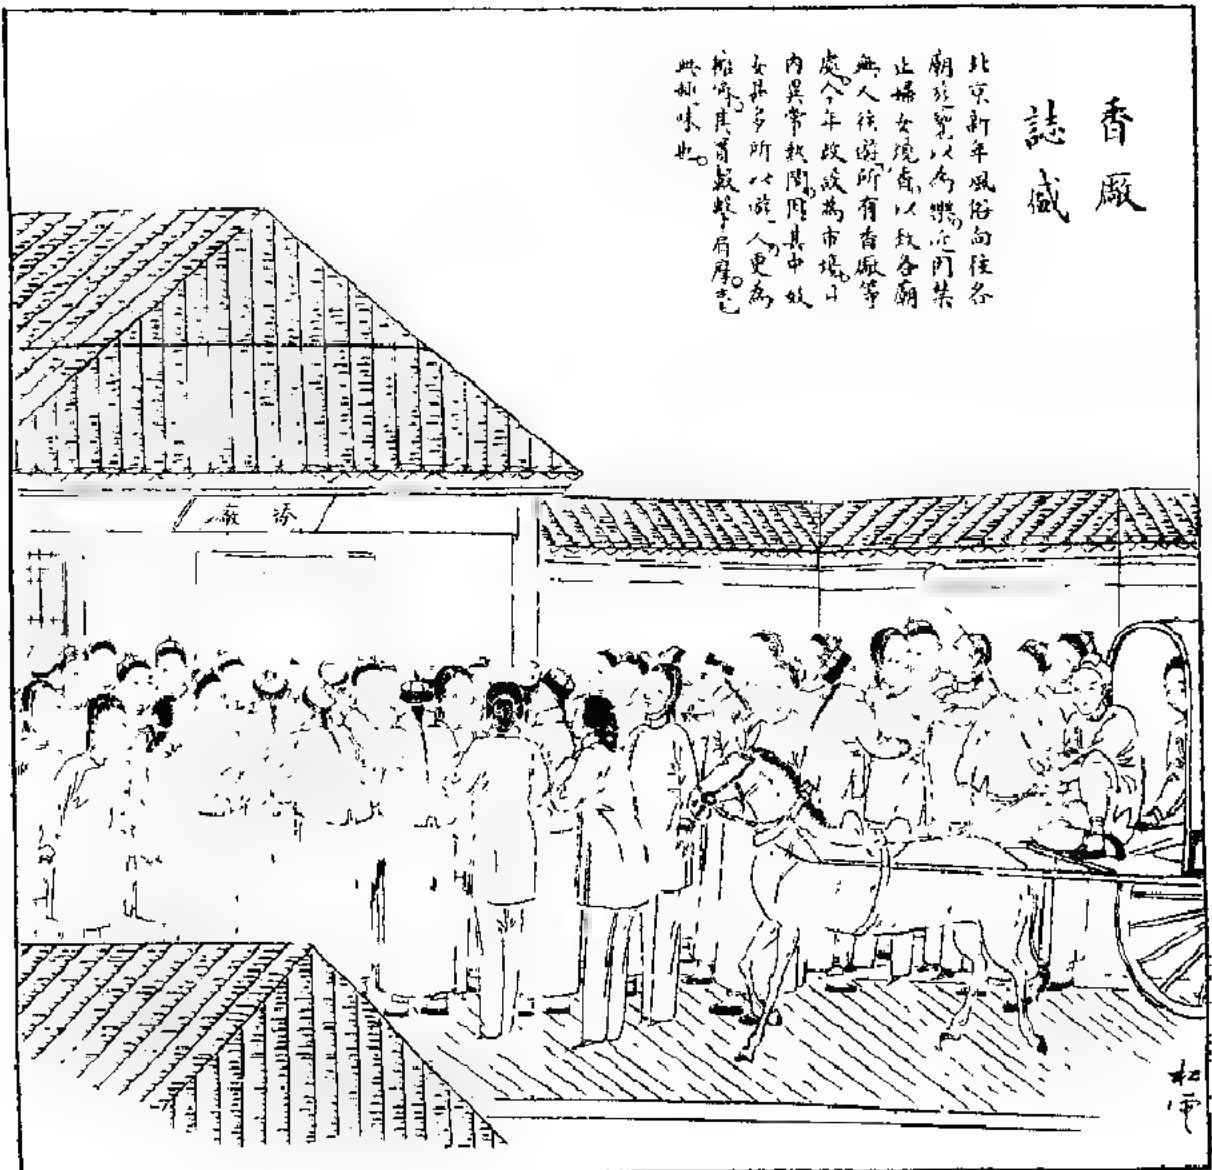 香廠
誌盛
北京新年風俗向往各
廟遊覽以為樂近門禁
止婦女燒香以致各廟
無人往遊所有香廠等
處今年改設為市場
內異常熱鬧因其中妓
女甚多所以遊人更為
擁擠其肩轂擊肩摩
無趣味也
廠
松雪